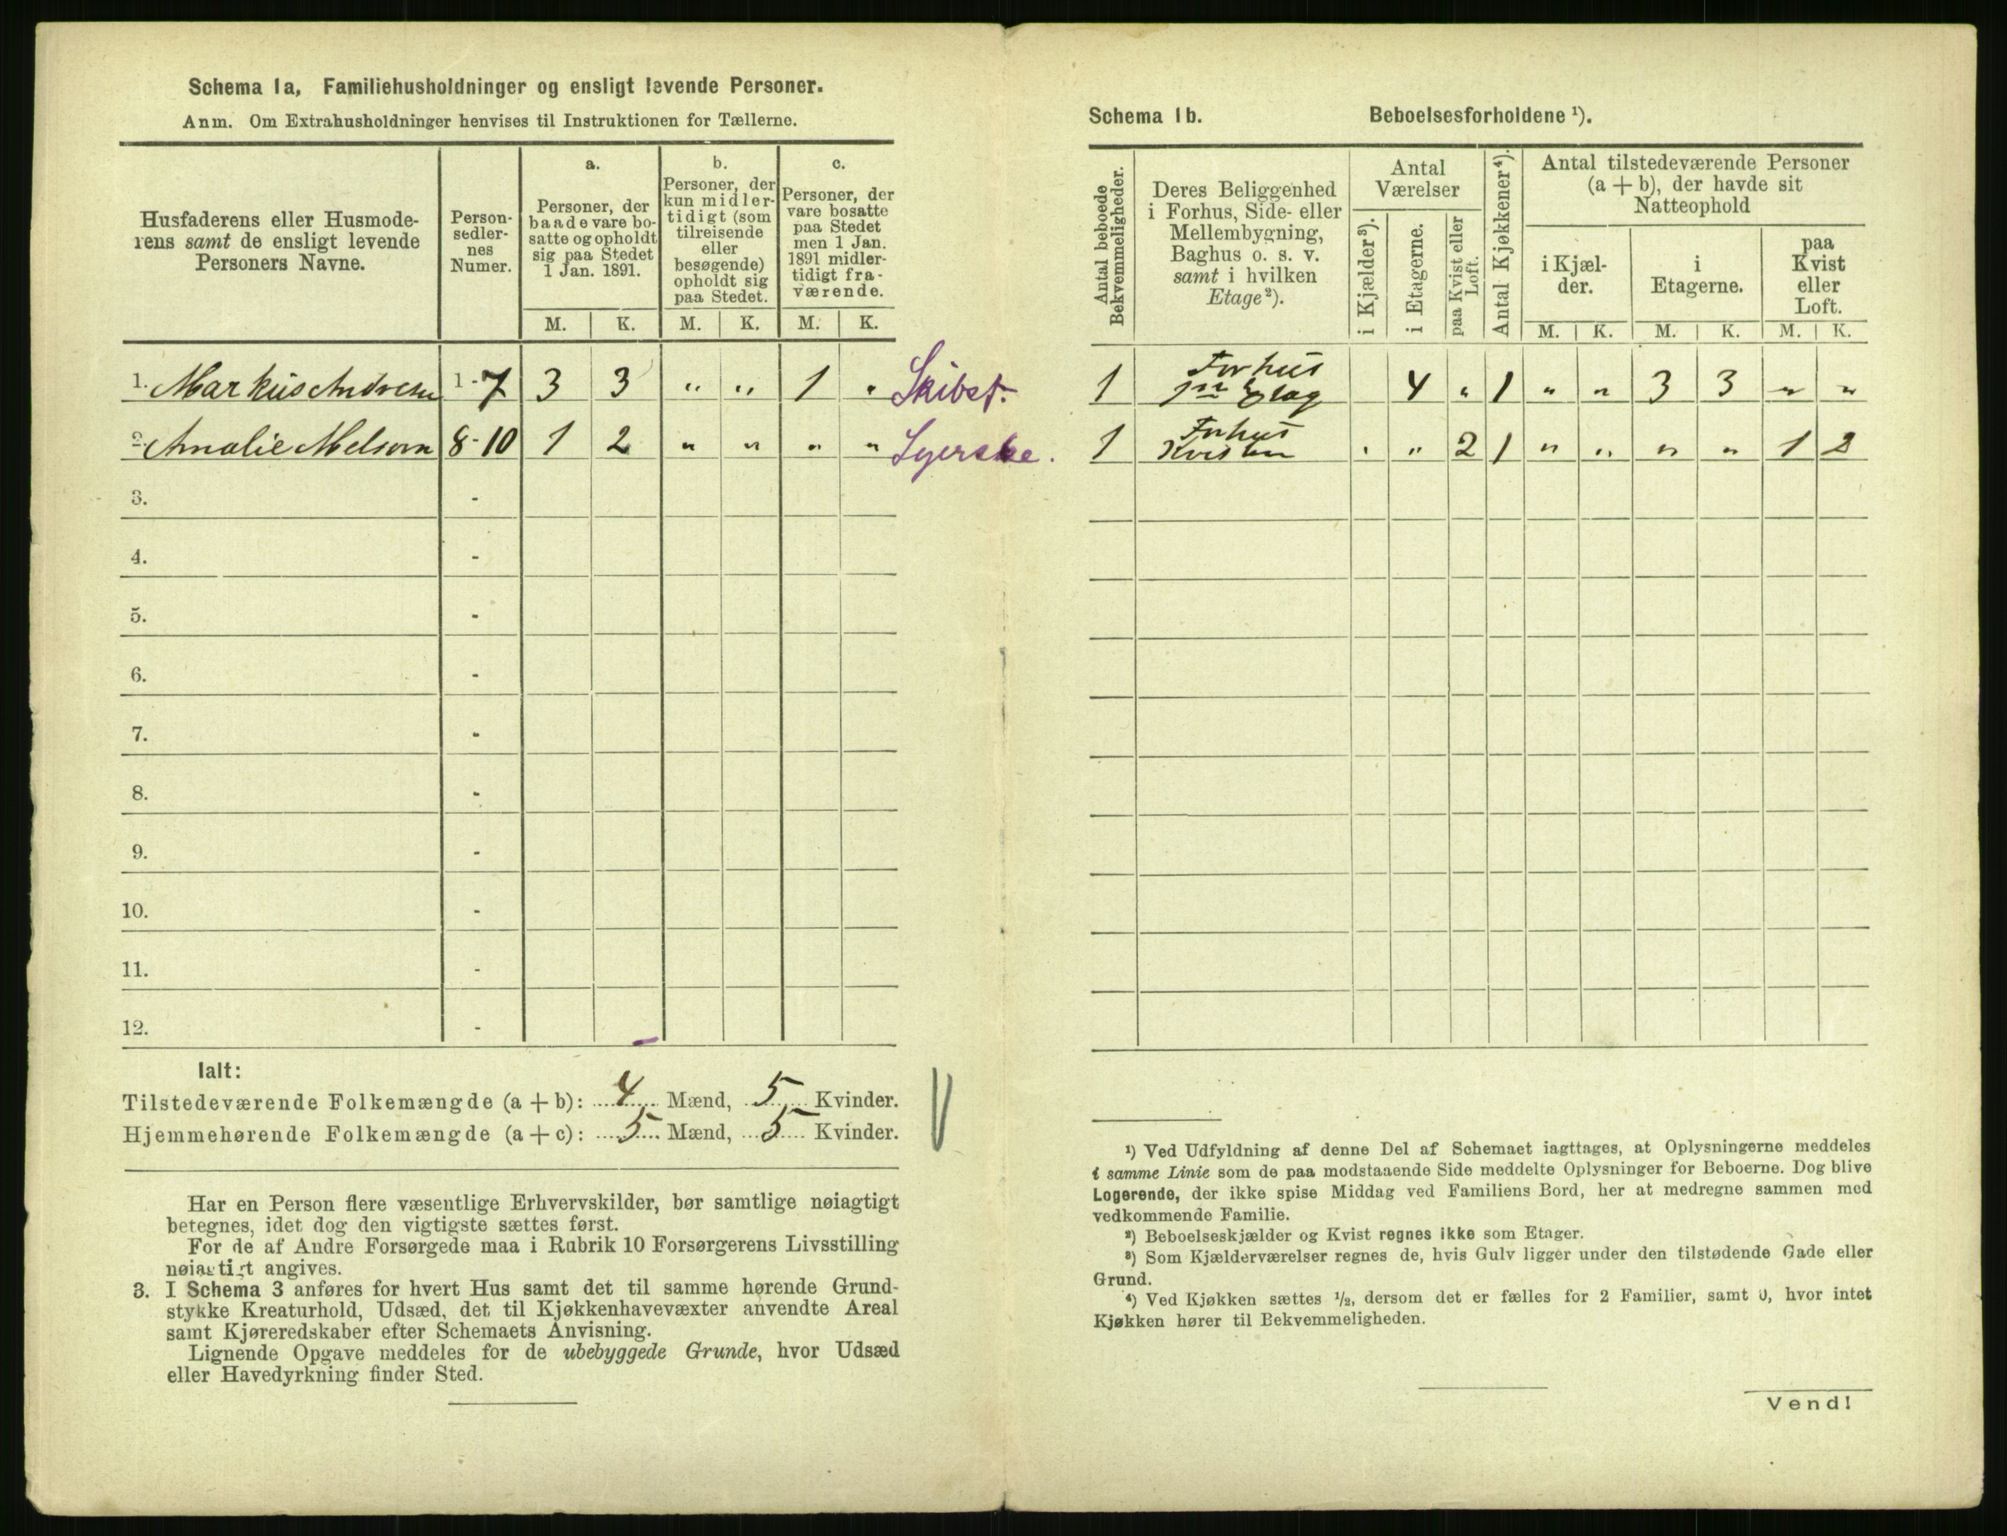 Schema 1a, Familiehusholdninger og ensligt levende Personer.
Anm. Om Extrahusholdninger henvises til Instruktionen for Tællerne.
Husfaderens eller Husmode-
rens samt de ensligt levende
Personers Navne.
Person-
sedler-
nes
Numer.
a.
Personer, der
baade vare bo-
satte og opholdt
sig paa Stedet
1 Jan. 1891.
b.
Personer, der
kun midler-
tidigt (som
tilreisende
eller
besøgende)
opholdt sig
paa Stedet.
c.
Personer, der
vare bosatte
paa Stedet
men 1 Jan.
1891 midler-
tidigt fra-
værende.
M. K. M. K. M. K.
1. Markus Andresen 1-7 3 3 " " 1 " Skibst.
2. Amalie Melsom 8-10 1 2 " " " " Syerske.
3. -
4. -
5. -
6. -
7. -
8. -
9. -
10. -
11. -
12. -
Ialt:
Tilstedeværende Folkemængde (a + b): 4 Mænd, 5 Kvinder.
Hjemmehørende Folkemængde (a + c): 5 Mænd, 5 Kvinder.
Har en Person flere væsentlige Erhvervskilder, bør samtlige nøiagtigt
betegnes, idet dog den vigtigste sættes først.
For de af Andre Forsørgede maa i Rubrik 10 Forsørgerens Livsstilling
nøiagtigt angives.
3. I Schema 3 anføres for hvert Hus samt det til samme hørende Grund-
stykke Kreaturhold, Udsæd, det til Kjøkkenhavevæxter anvendte Areal
samt Kjøreredskaber efter Schemaets Anvisning.
Lignende Opgave meddeles for de ubebyggede Grunde, hvor Udsæd
eller Havedyrkning finder Sted.
Schema 1b. Beboelsesforholdene ¹).
Antal beboede
Bekvemmeligheder.
Deres Beliggenhed
i Forhus, Side- eller
Mellembygning,
Baghus o. s. v.
samt i hvilken
Etage ²).
Antal
Værelser
i Kjælder ³).
i Etagerne.
paa Kvist eller
Loft.
Antal Kjøkkener ⁴).
Antal tilstedeværende Personer
(a + b), der havde sit
Natteophold
i Kjæl-
der.
i
Etagerne.
paa
Kvist
eller
Loft.
M. K. M. K. M. K.
1 Forhus
1ste Etag 4 " 1 " " 3 3 " "
1 Forhus
Kvisten " " 2 1 " " " " 1 2
¹) Ved Udfyldning af denne Del af Schemaet iagttages, at Oplysningerne meddeles
i samme Linie som de paa modstaaende Side meddelte Oplysninger for Beboerne. Dog blive
Logerende, der ikke spise Middag ved Familiens Bord, her at medregne sammen med
vedkommende Familie.
²) Beboelseskjælder og Kvist regnes ikke som Etager.
³) Som Kjælderværelser regnes de, hvis Gulv ligger under den tilstødende Gade eller
Grund.
⁴) Ved Kjøkken sættes ½, dersom det er fælles for 2 Familier, samt 0, hvor intet
Kjøkken hører til Bekvemmeligheden.
Vend!